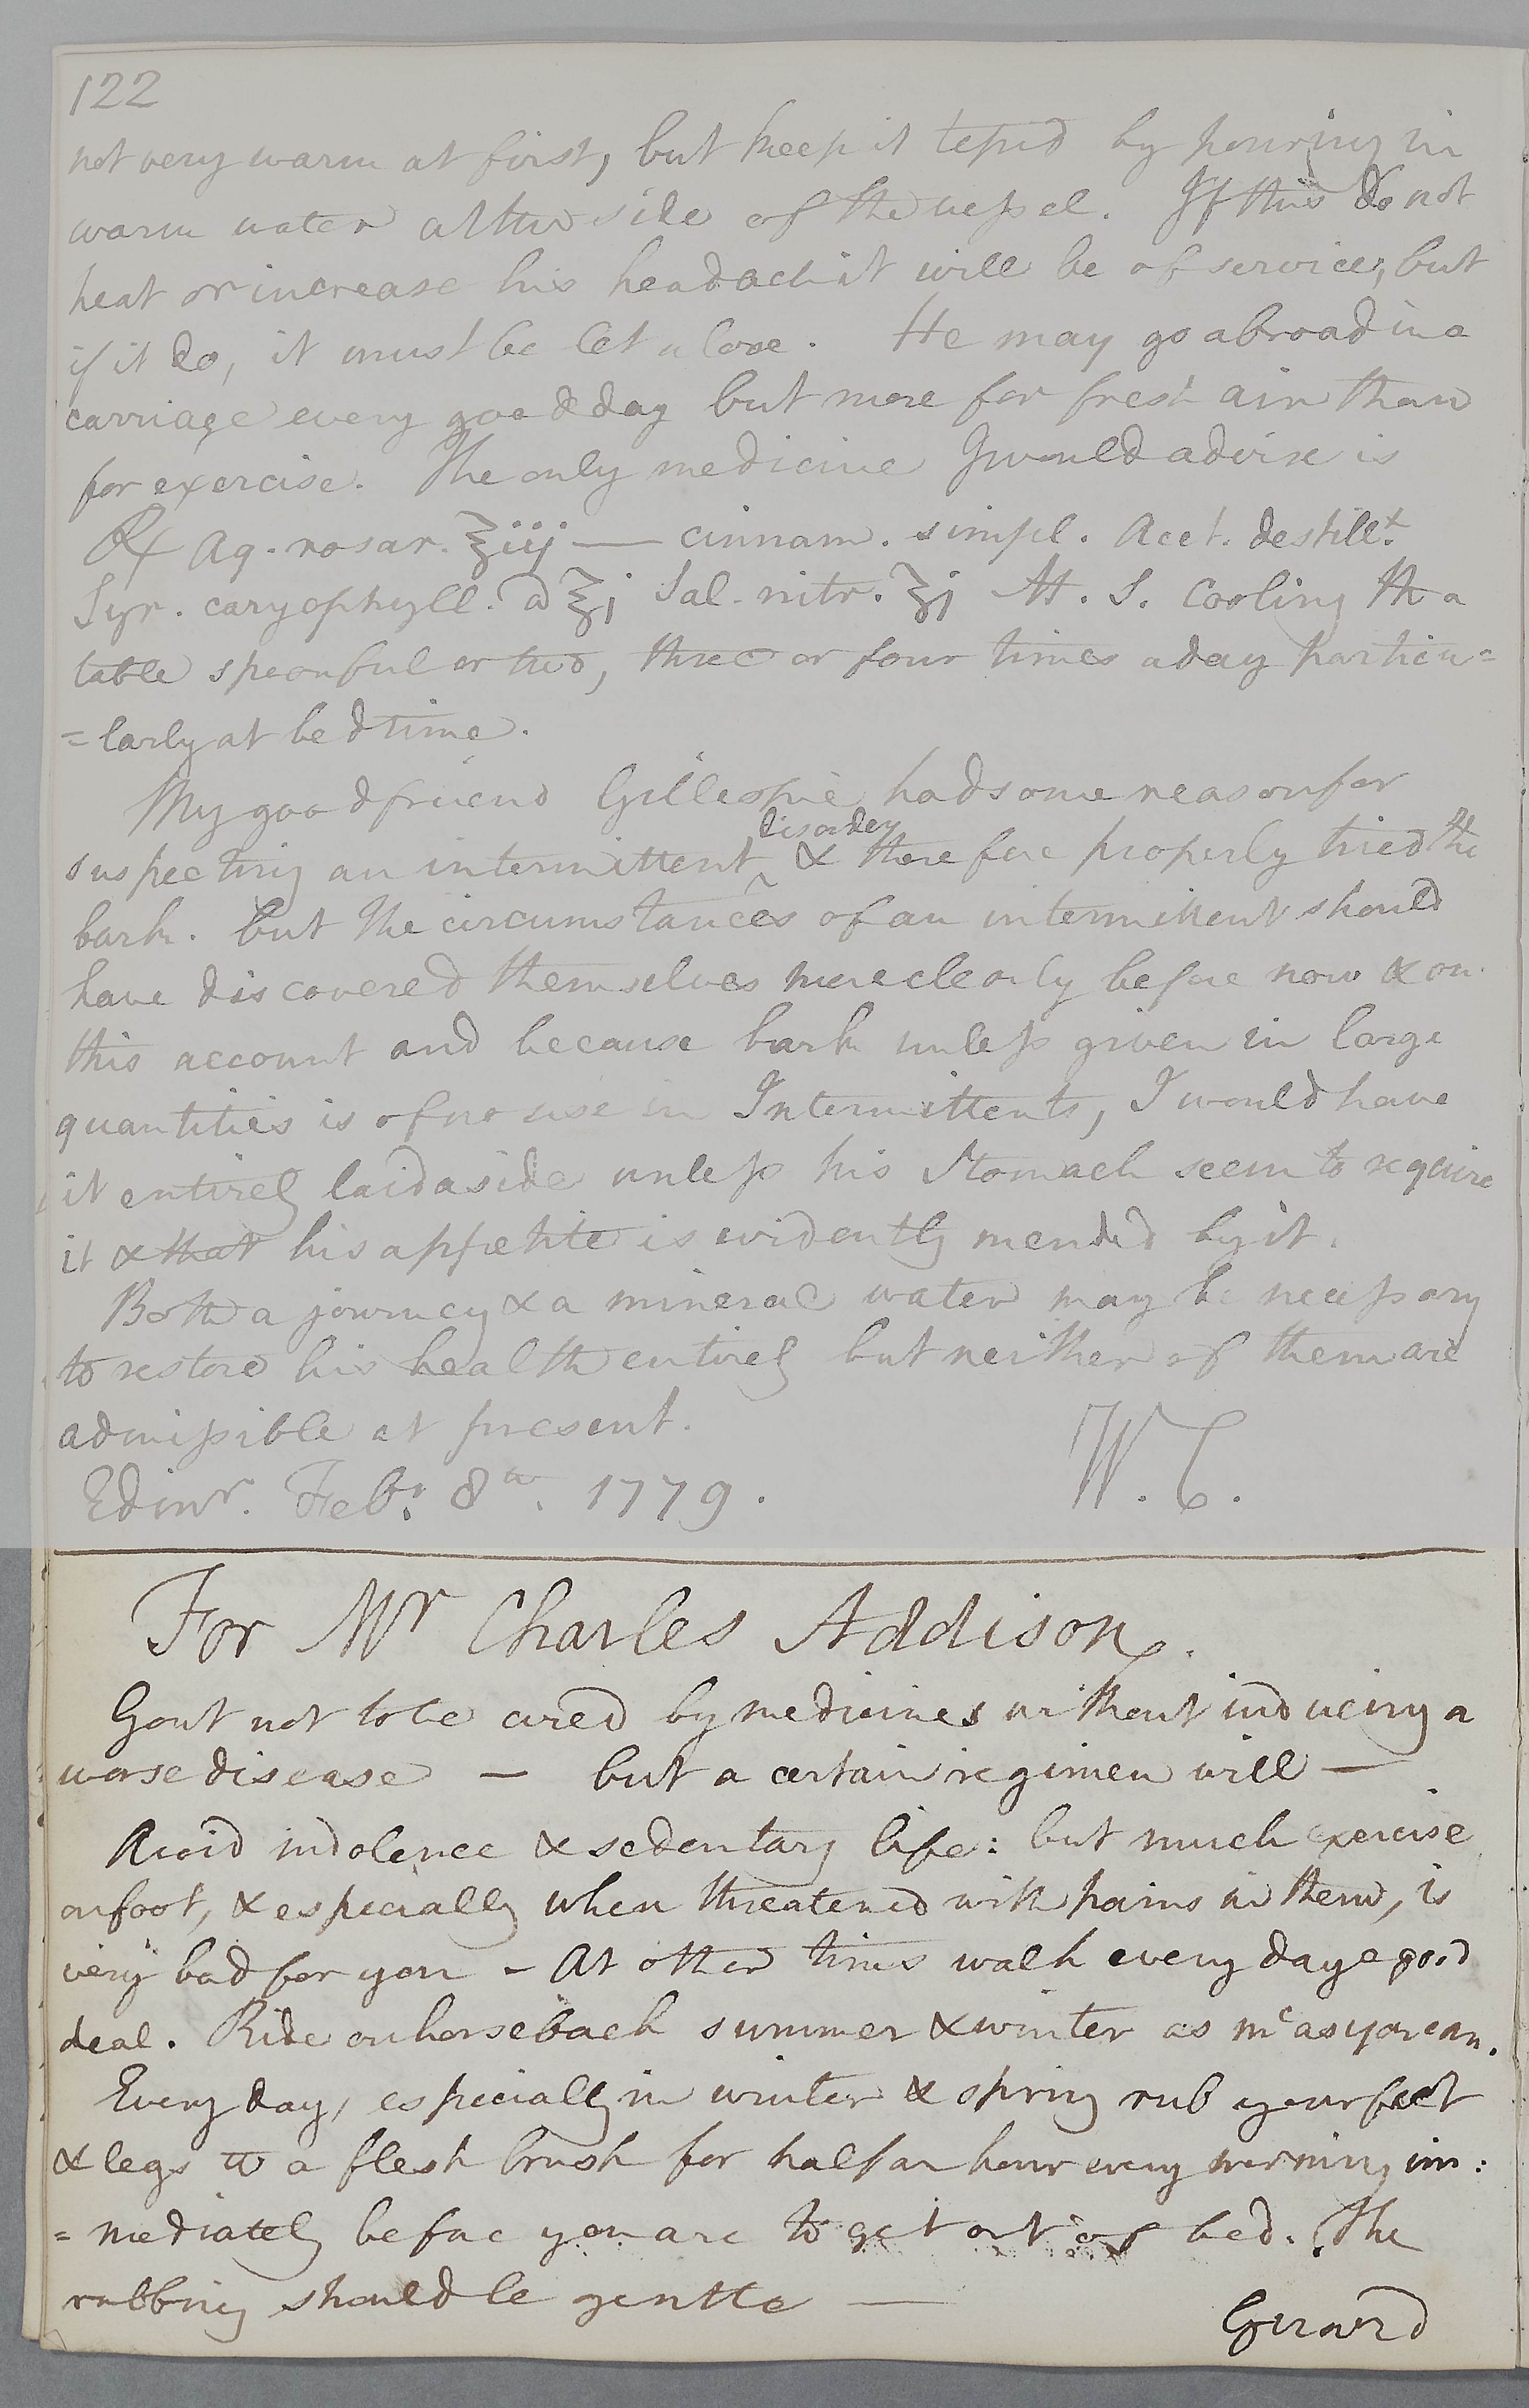 122
not very warm at first, but keep it tepid by pouring in
warm water at the side of the vessel. If this do not
heat or increase his headach it will be of service, but
if it do, it must be let alone. He may go abroad in a
carriage every good day but more for fresh air than
for exercise. The only medicine I would advise is
℞ Aq. rosar. ℥iij — cinnam. simpl. Acet. destillt.
Syr. caryophyll. a ℥j Sal. nitr. ʒj M. S. Cooling M a
table spoonful or two, three or four times a day particu=
=larly at bed time.
My good friend Gillespie had some reason for
suspecting an intermittent ^disorder & therefore properly tried the
bark. but the circumstances of an intermittent should
have discovered themselves more clearly before now & on
this account and because bark unless given in large
quantities is of no use in Intermittents, I would have
it entirely laid aside unless his Stomach seem to require
it & that his appetite is evidently mended by it.
Both a journey & a mineral water may be necessary
to restore his health entirely but neither of them are
admissible at present.
W. C.
Edinr. Feb. 8th. 1779.
For Mr Charles Addison.
Gout not to be cured by medicines without inducing a
worse disease — but a certain regimen will —
Avoid indolence & sedentary life: but much exercise
on foot, & especially when threatened with pains in them, is
very bad for you - At other times walk every day a good
deal. Ride on horseback summer & winter as mc as you can.
Every day, especially in winter & spring rub your feet
& legs w a flesh brush for half an hour every morning im:
=mediately before you are to get out of bed. The
rubbing should be gentle —
Guard